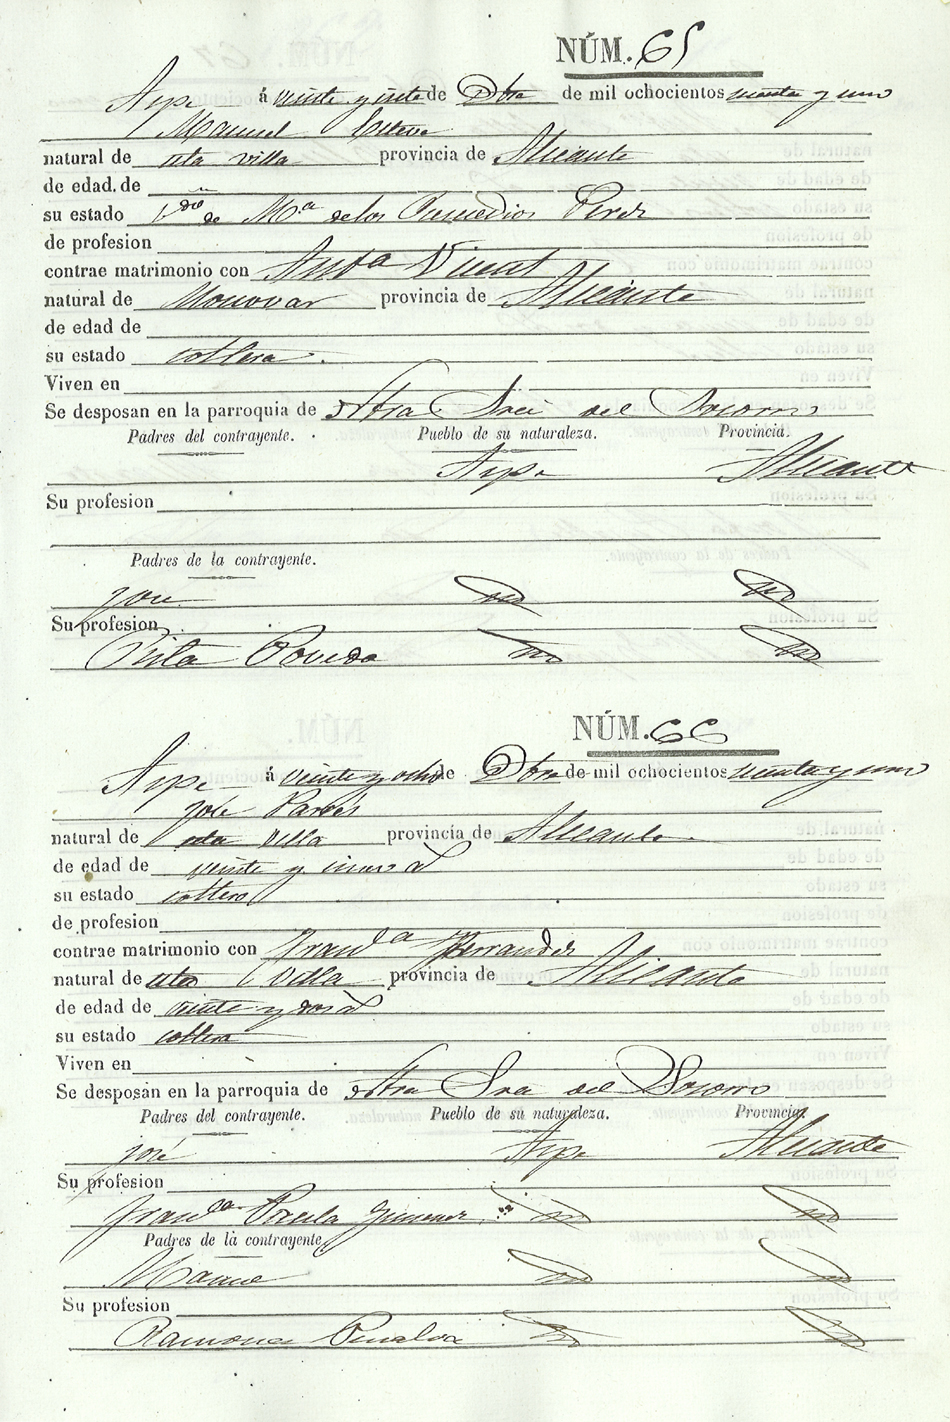 NÚM. 65
Aspe á veinte y siete de Dbre de mil ochocientos y uno
Manuel Esteve
natural de esta villa provincia de Alicante
de edad de
su estado Vdo de Mª de los Remedios Perez
de profesion
contrae matrimonio con Vicent
natural de Monovar provincia de Alicante
de edad de
su estado soltera.
Viven en
Se desposan en la parroquia de Ntra Sra del Socorro
Padres del contrayente. Pueblo de su naturaleza. Provincia.
Aspe Alicante
Su profesion
Padres de la contrayente.
José
Su profesion
Rita Poveda
NÚM. 66
Aspe á veinte y ocho de Dbre de mil ochocientos y uno
José Pavres
natural de esta villa provincia de Alicante
de edad de veinte y
su estado soltero
de profesion
contrae matrimonio con Franca Hernandez
natural de esta Villa provincia de Alicante
de edad de veinte y dos a
su estado soltera
Viven en
Se desposan en la parroquia de Ntra Sra del Socorro
Padres del contrayente. Pueblo de su naturaleza. Provincia.
José Aspe Alicante
Su profesion
Franca Paula Gimenez
Padres de la contrayente.
Manuel
Su profesion
Ramona Penalva